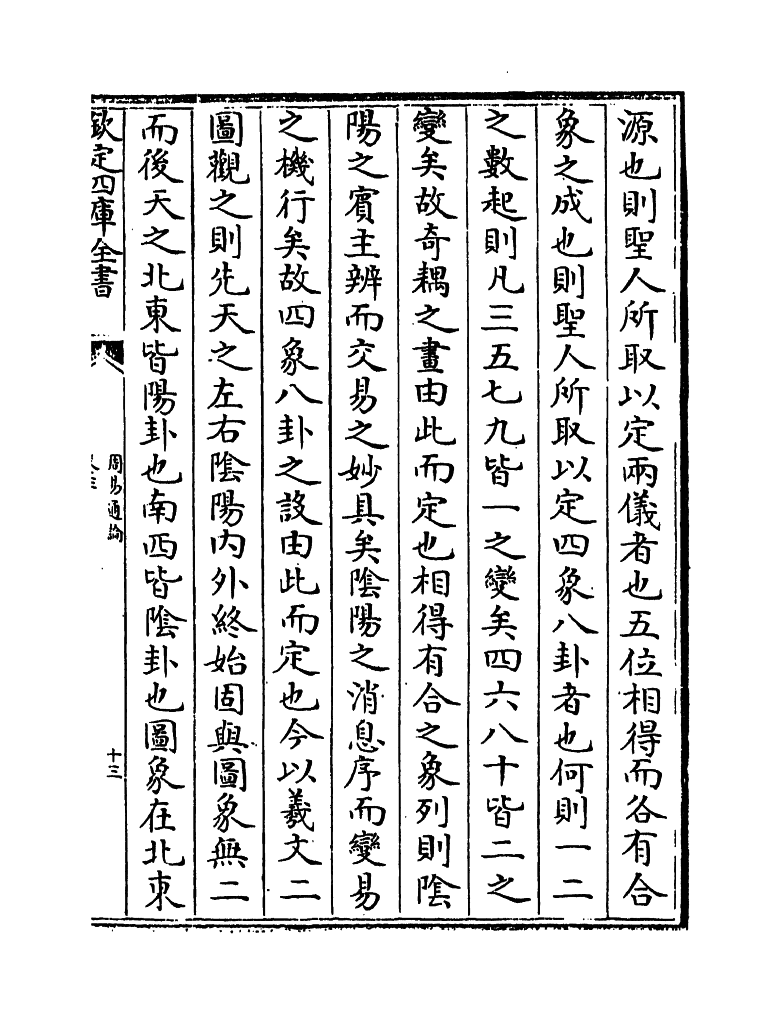 源也則聖人所取以定兩儀者也五位相得而各有合
象之成也則聖人所取以定四象八卦者也何則一二
之數起則凡三五七九皆一之變矣四六八十皆二之
變矣故奇耦之畫由此而定也相得有合之象列則陰
陽之賓主辨而交易之妙具矣陰陽之消息序而變易
之機行矣故四象八卦之設由此而定也今以羲文二
圖觀之則先天之左右陰陽内外終始固與圖象無二
而後天之北東皆陽卦也南西皆陰卦也圖象在北東
欽定四庫全書
周易通論
十三